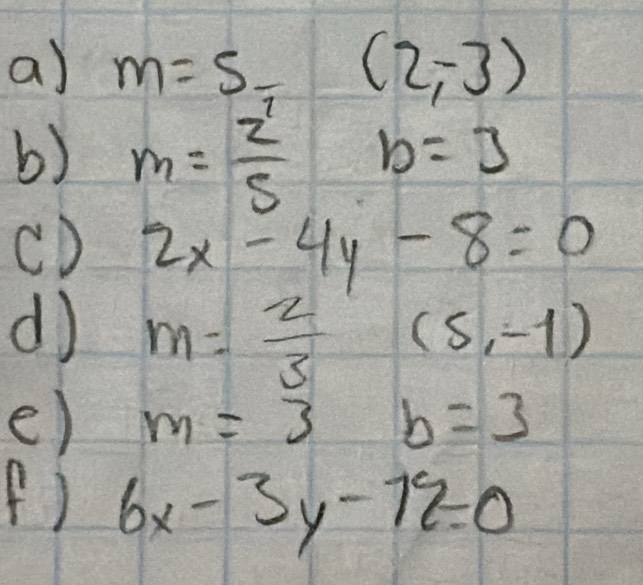 a) m = 5 (2,-3)
b) m = 2/5 b = 3
c) 2x - 4y - 8 = 0
d) m = 2/3 (5,-1)
e) m = 3 b = 3
f) 6x - 3y - 12 = 0